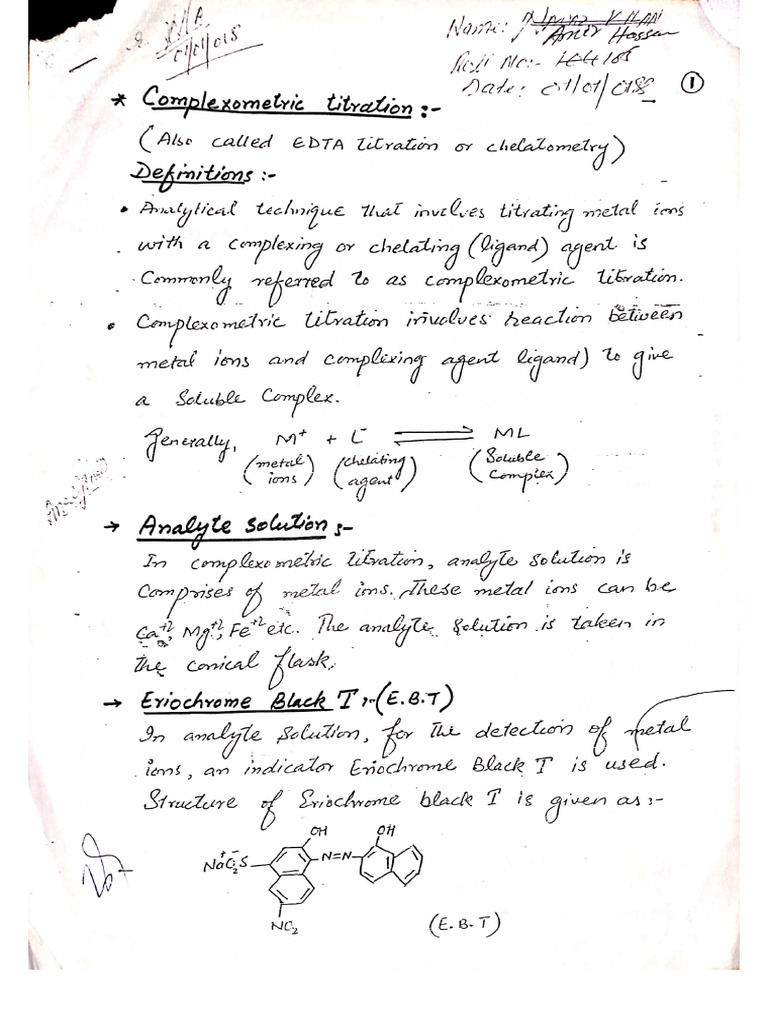 01/01/018
Name:
Anees Hassan
Roll No:-
Date: 01/01/018
1
* Complexometric titration :-
(Also called EDTA titration or chelatometry)
Definitions :-
• Analytical technique that involves titrating metal ions
with a complexing or chelating (ligand) agent is
Commonly referred to as complexometric titration.
• Complexometric titration involves reaction between
metal ions and complexing agent ligand) to give
a Soluble Complex.
Generally, M+ + L- ⇌ ML
(metal ions) (chelating agent) (Soluble Complex)
→ Analyte solution :-
In complexometric titration, analyte solution is
Comprises of metal ions. These metal ions can be
Ca+2, Mg+2, Fe+2 etc. The analyte solution is taken in
the conical flask.
→ Eriochrome Black T :- (E.B.T)
In analyte solution, for the detection of metal
ions, an indicator Eriochrome Black T is used.
Structure of Eriochrome black T is given as :-
OH OH
NaO2S+- N=N
NO2
(E.B.T)